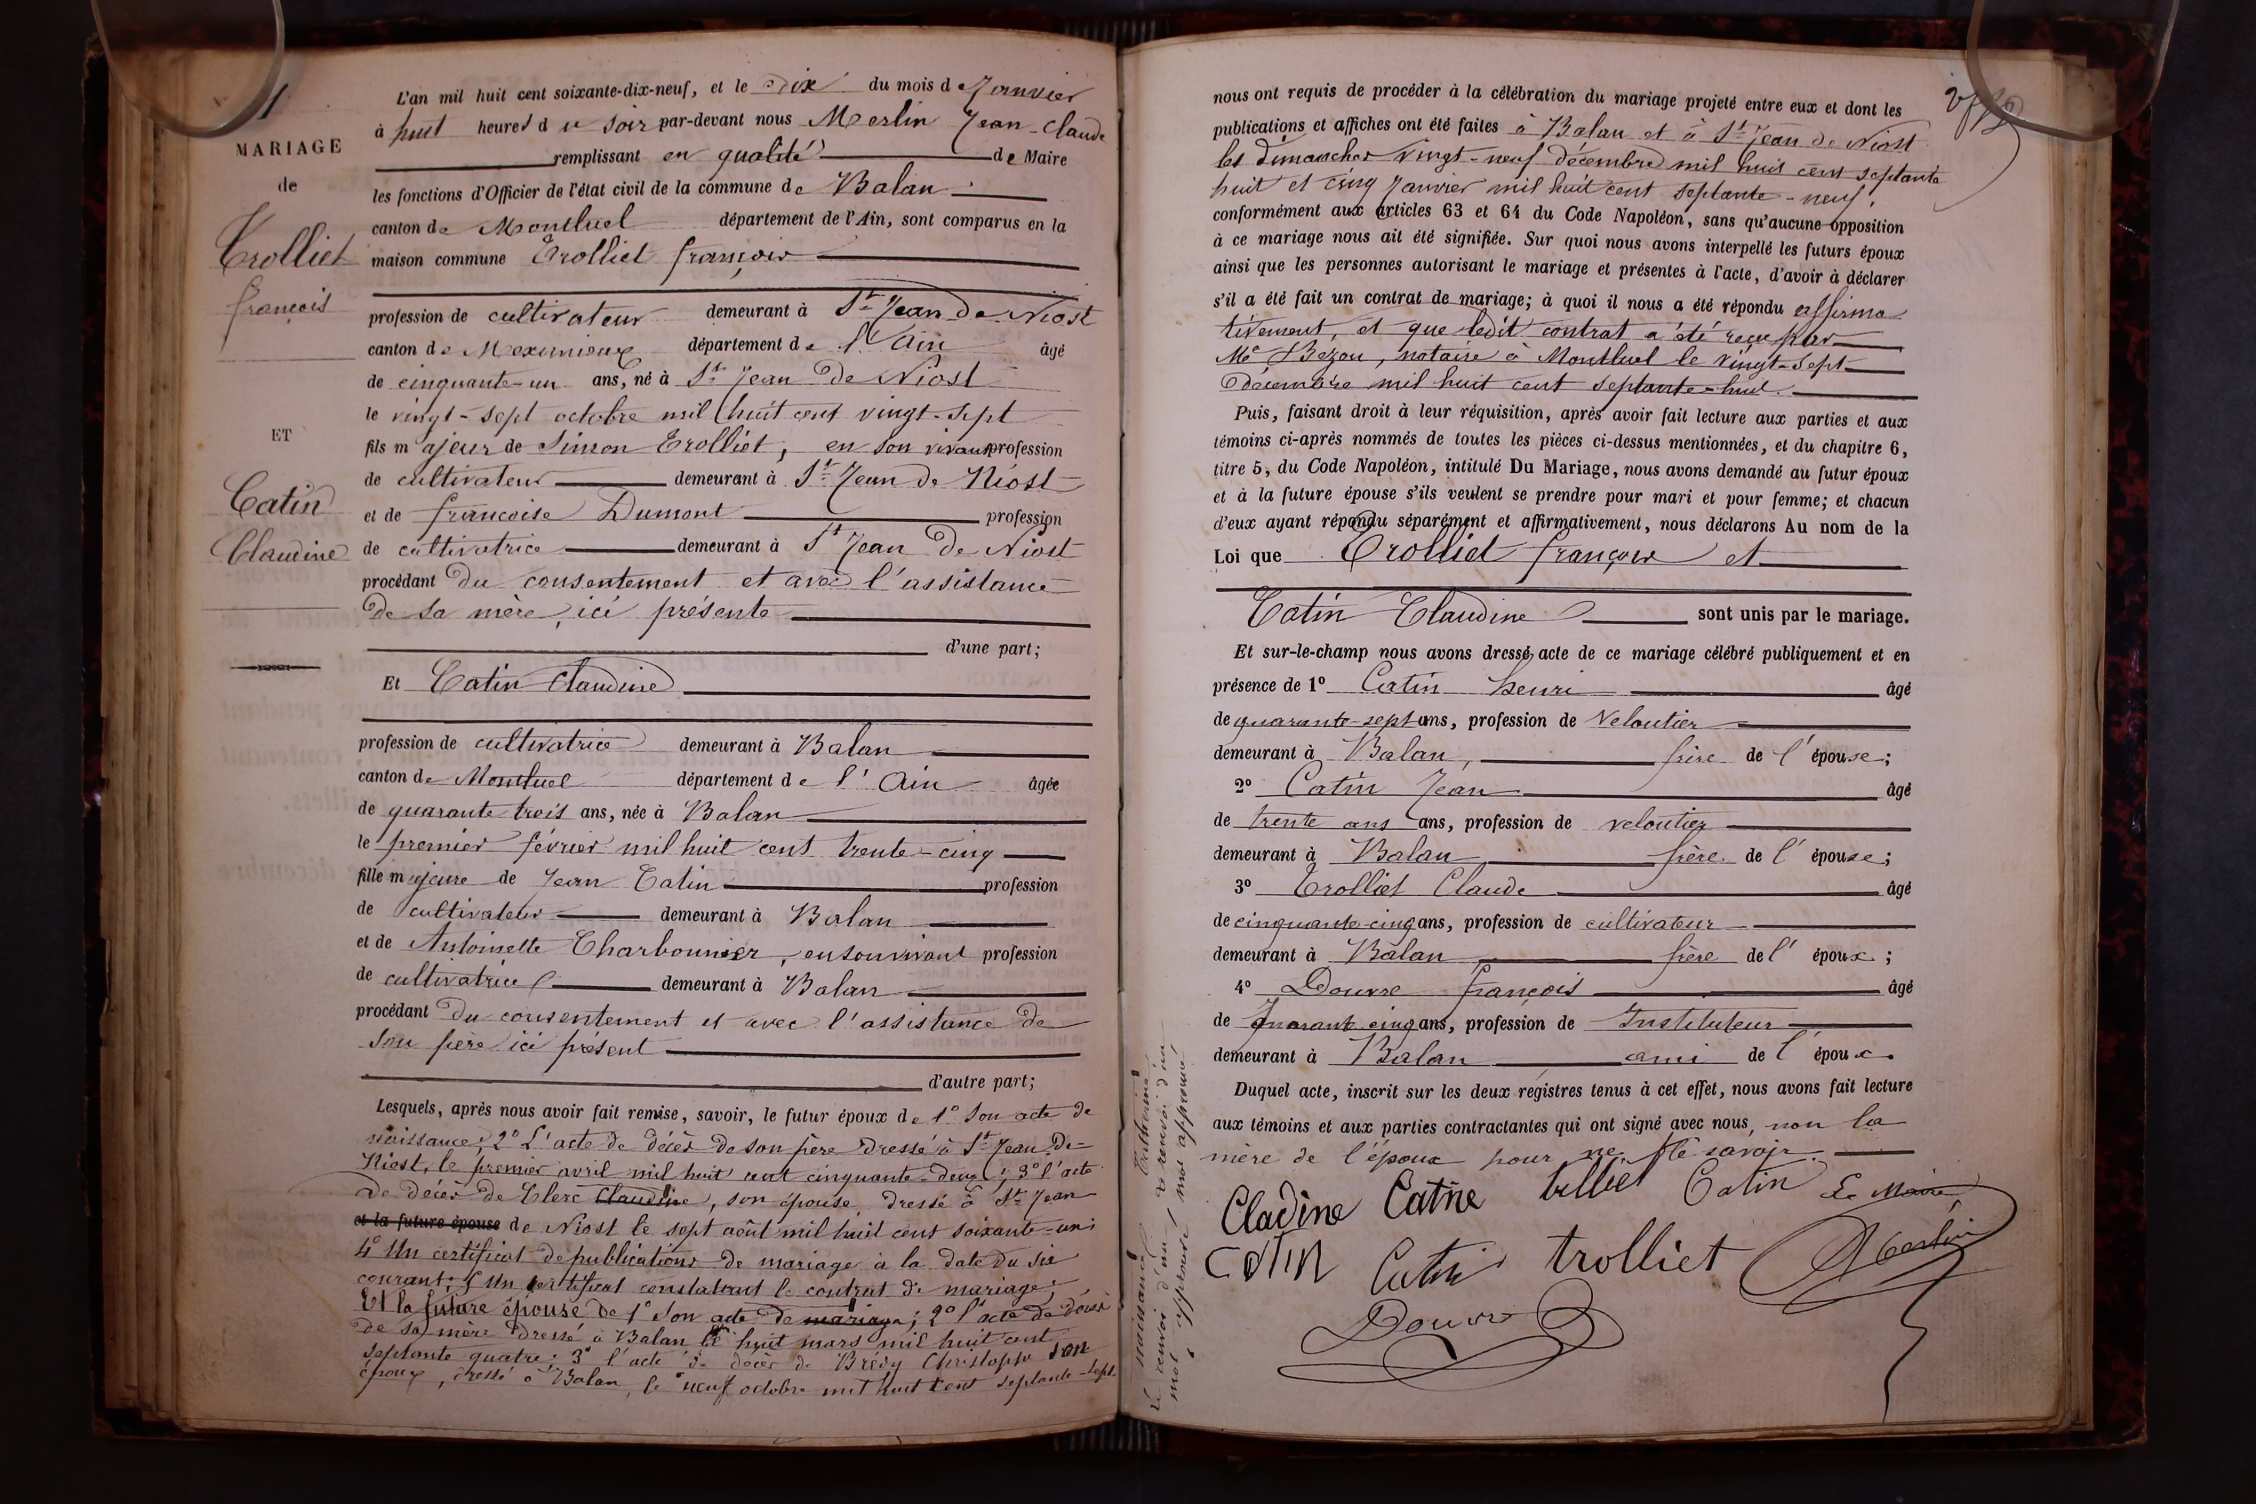 1
MARIAGE
de
Trolliet
françois
ET
Catin
Claudine
L'an mil huit cent soixante-dix-neuf, et le dix du mois de Janvier
à huit heures du soir par-devant nous Merlin Jean-Claude
remplissant en qualité de Maire
les fonctions d'Officier de l'état civil de la commune de Balan
canton de Montluel département de l'Ain, sont comparus en la
maison commune Trolliet françois
profession de cultivateur demeurant à St Jean de Niost
canton de Meximieux département de l'Ain âgé
de cinquante-un ans, né à St Jean de Niost
le vingt-sept octobre mil huit cent vingt-sept
fils majeur de Simon Trolliet, en son vivant profession
de cultivateur demeurant à St Jean de Niost
et de françoise Dumont profession
de cultivatrice demeurant à St Jean de Niost
procédant du consentement et avec l'assistance
de sa mère, ici présente
d'une part;
Et Catin Claudine
profession de cultivatrice demeurant à Balan
canton de Montluel département de l'Ain âgée
de quarante trois ans, née à Balan
le premier février mil huit cent trente-cinq
fille majeure de Jean Catin profession
de cultivateur demeurant à Balan
et de Antoinette Charbonnier, en son vivant profession
de cultivatrice demeurant à Balan
procédant du consentement et avec l'assistance de
son père ici présent
d'autre part;
Lesquels, après nous avoir fait remise, savoir, le futur époux de 1° son acte de
naissance; 2° L'acte de décès de son père dressé à St Jean de
Niost, le premier avril mil huit cent cinquante-deux; 3° l'acte
de décès de Clerc Claudine, son épouse, dressé à St Jean
et la future épouse de Niost le sept août mil huit cent soixante-un;
4° Un certificat de publications de mariage à la date du six
courant; 5° Un certificat constatant le contrat de mariage;
Et la future épouse de 1° son acte de mariage; 2° l'acte de décès
de sa mère dressé à Balan le huit mars mil huit cent
septante quatre; 3° l'acte de décès de Brédy Christophe son
époux, dressé à Balan, le neuf octobre mil huit cent septante-sept
nous ont requis de procéder à la célébration du mariage projeté entre eux et dont les
publications et affiches ont été faites à Balan et à St Jean de Niost
les dimanches vingt-neuf décembre mil huit cent septante
huit et cinq Janvier mil huit cent septante-neuf,
conformément aux articles 63 et 64 du Code Napoléon, sans qu'aucune opposition
à ce mariage nous ait été signifiée. Sur quoi nous avons interpellé les futurs époux
ainsi que les personnes autorisant le mariage et présentes à l'acte, d'avoir à déclarer
s'il a été fait un contrat de mariage; à quoi il nous a été répondu affirma
tivement, et que ledit contrat a été reçu par
Me Bezon, notaire à Montluel le vingt-sept
décembre mil huit cent septante-huit.
Puis, faisant droit à leur réquisition, après avoir fait lecture aux parties et aux
témoins ci-après nommés de toutes les pièces ci-dessus mentionnées, et du chapitre 6,
titre 5, du Code Napoléon, intitulé Du Mariage, nous avons demandé au futur époux
et à la future épouse s'ils veulent se prendre pour mari et pour femme; et chacun
d'eux ayant répondu séparément et affirmativement, nous déclarons Au nom de la
Loi que Trolliet françois et
Catin Claudine sont unis par le mariage.
Et sur-le-champ nous avons dressé acte de ce mariage célébré publiquement et en
présence de 1° Catin henri âgé
de quarante-sept ans, profession de veloutier
demeurant à Balan, frère de l'épouse;
2° Catin Jean âgé
de trente ans ans, profession de veloutier
demeurant à Balan frère de l'épouse;
3° Trolliet Claude âgé
de cinquante-cinq ans, profession de cultivateur
demeurant à Balan frère de l'époux;
4° Douvre françois âgé
de quarante cinq ans, profession de Instituteur
demeurant à Balan ami de l'époux
Duquel acte, inscrit sur les deux régistres tenus à cet effet, nous avons fait lecture
aux témoins et aux parties contractantes qui ont signé avec nous, non la
mère de l'époux pour ne le savoir.
Cladine Catine Catin Le Maire
Catin Catin trolliet Merlin
Douvre